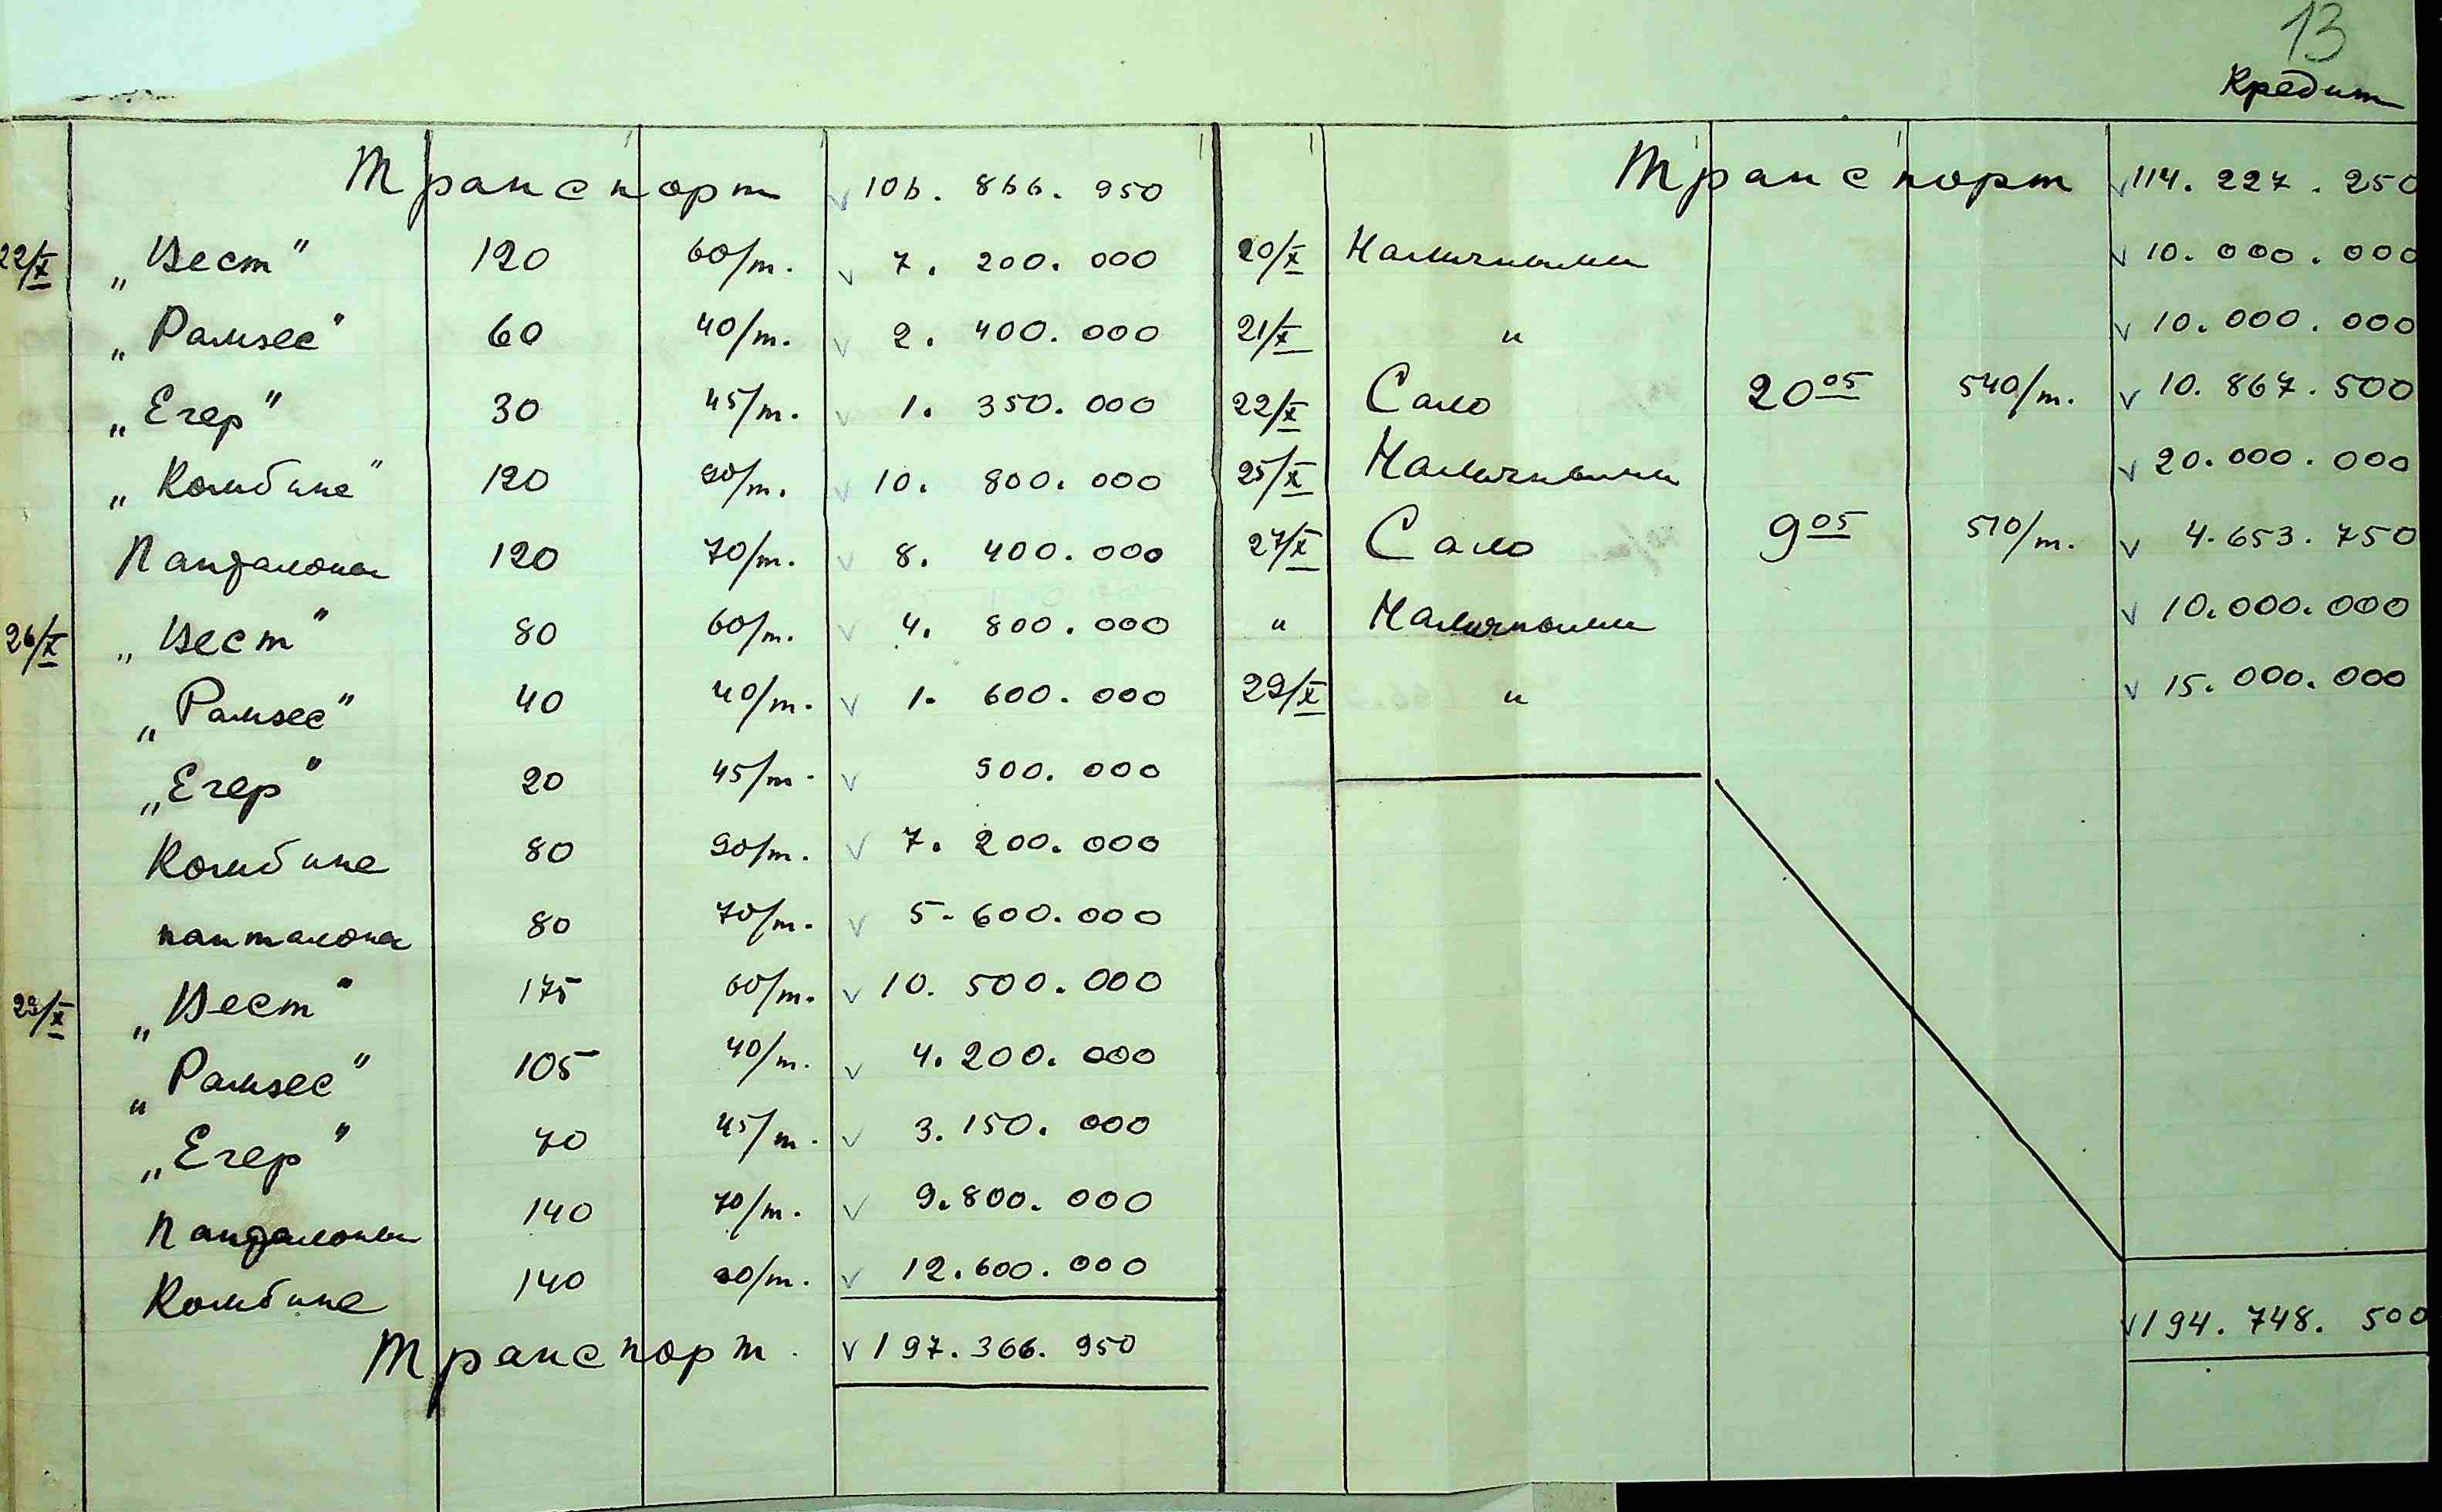 13
Кредит
Транспорт 106. 866. 950
22/X „Вест" 120 60/т. 7. 200. 000
„Рамзес" 60 40/т. 2. 400. 000
„Егер" 30 45/т. 1. 350. 000
„Комбине" 120 90/т. 10. 800. 000
Пандалоны 120 70/т. 8. 400. 000
26/X „Вест" 80 60/т. 4. 800. 000
„Рамзес" 40 40/т. 1. 600. 000
„Егер" 20 45/т. 900. 000
Комбине 80 90/т. 7. 200. 000
панталоны 80 70/т. 5. 600. 000
29/X „Вест" 175 60/т. 10. 500. 000
„Рамзес" 105 40/т. 4. 200. 000
„Егер" 70 45/т. 3. 150. 000
Пандалоны 140 70/т. 9. 800. 000
Комбине 140 90/т. 12. 600. 000
Транспорт. 197. 366. 950
Транспорт 114. 227. 250
20/X Наличными 10. 000. 000
21/X " 10. 000. 000
22/X Сало 20 05 540/т. 10. 867. 500
25/X Наличными 20. 000. 000
27/X Сало 9 05 510/т. 4. 653. 750
" Наличными 10. 000. 000
29/X " 15. 000. 000
194. 748. 500